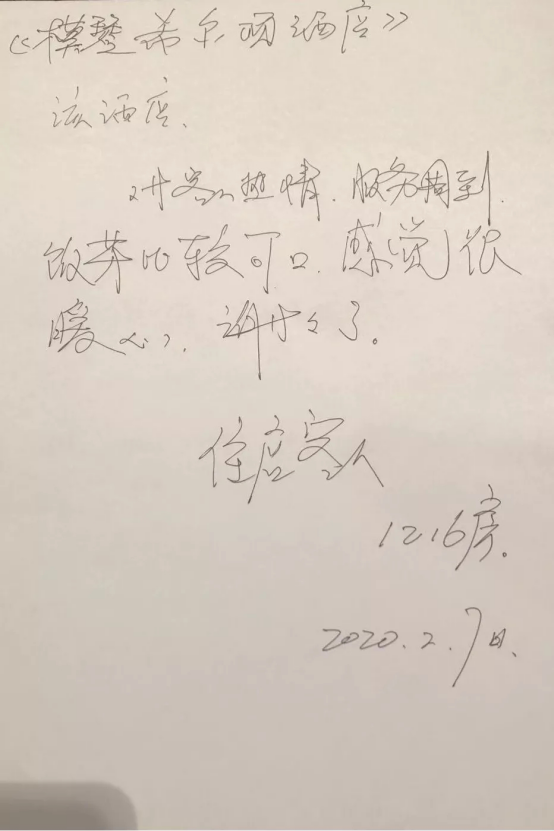 《模楚希尔顿酒店》
该酒店、
对客人热情、服务周到、
饭菜比较可口、感觉很
暖心，谢谢了。
住店客人
1216房。
2020.2.7日、